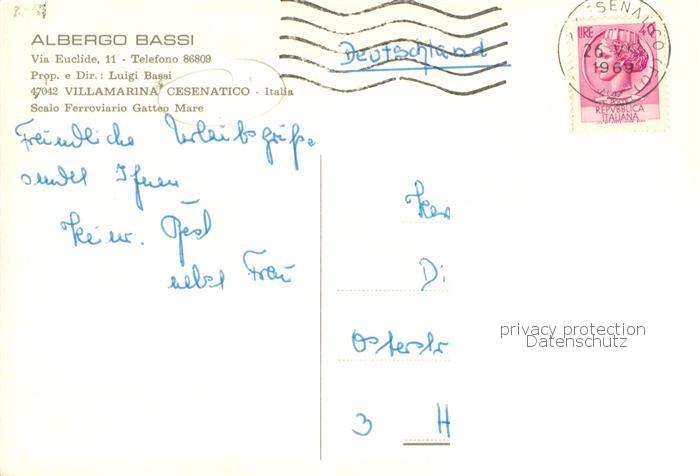 ALBERGO BASSI
Via Euclide, 11 - Telefono 86809
Prop. e Dir.: Luigi Bassi
47042 VILLAMARINA CESENATICO - Italia
Scalo Ferroviario Gatteo Mare
Deutschland
LIRE 40
26
1969
REPVBBLICA
ITALIANA
Freundliche Urlaubsgrüße
sendet Ihnen
nebst Frau
Di
Osterstr
3 H
privacy protection
Datenschutz